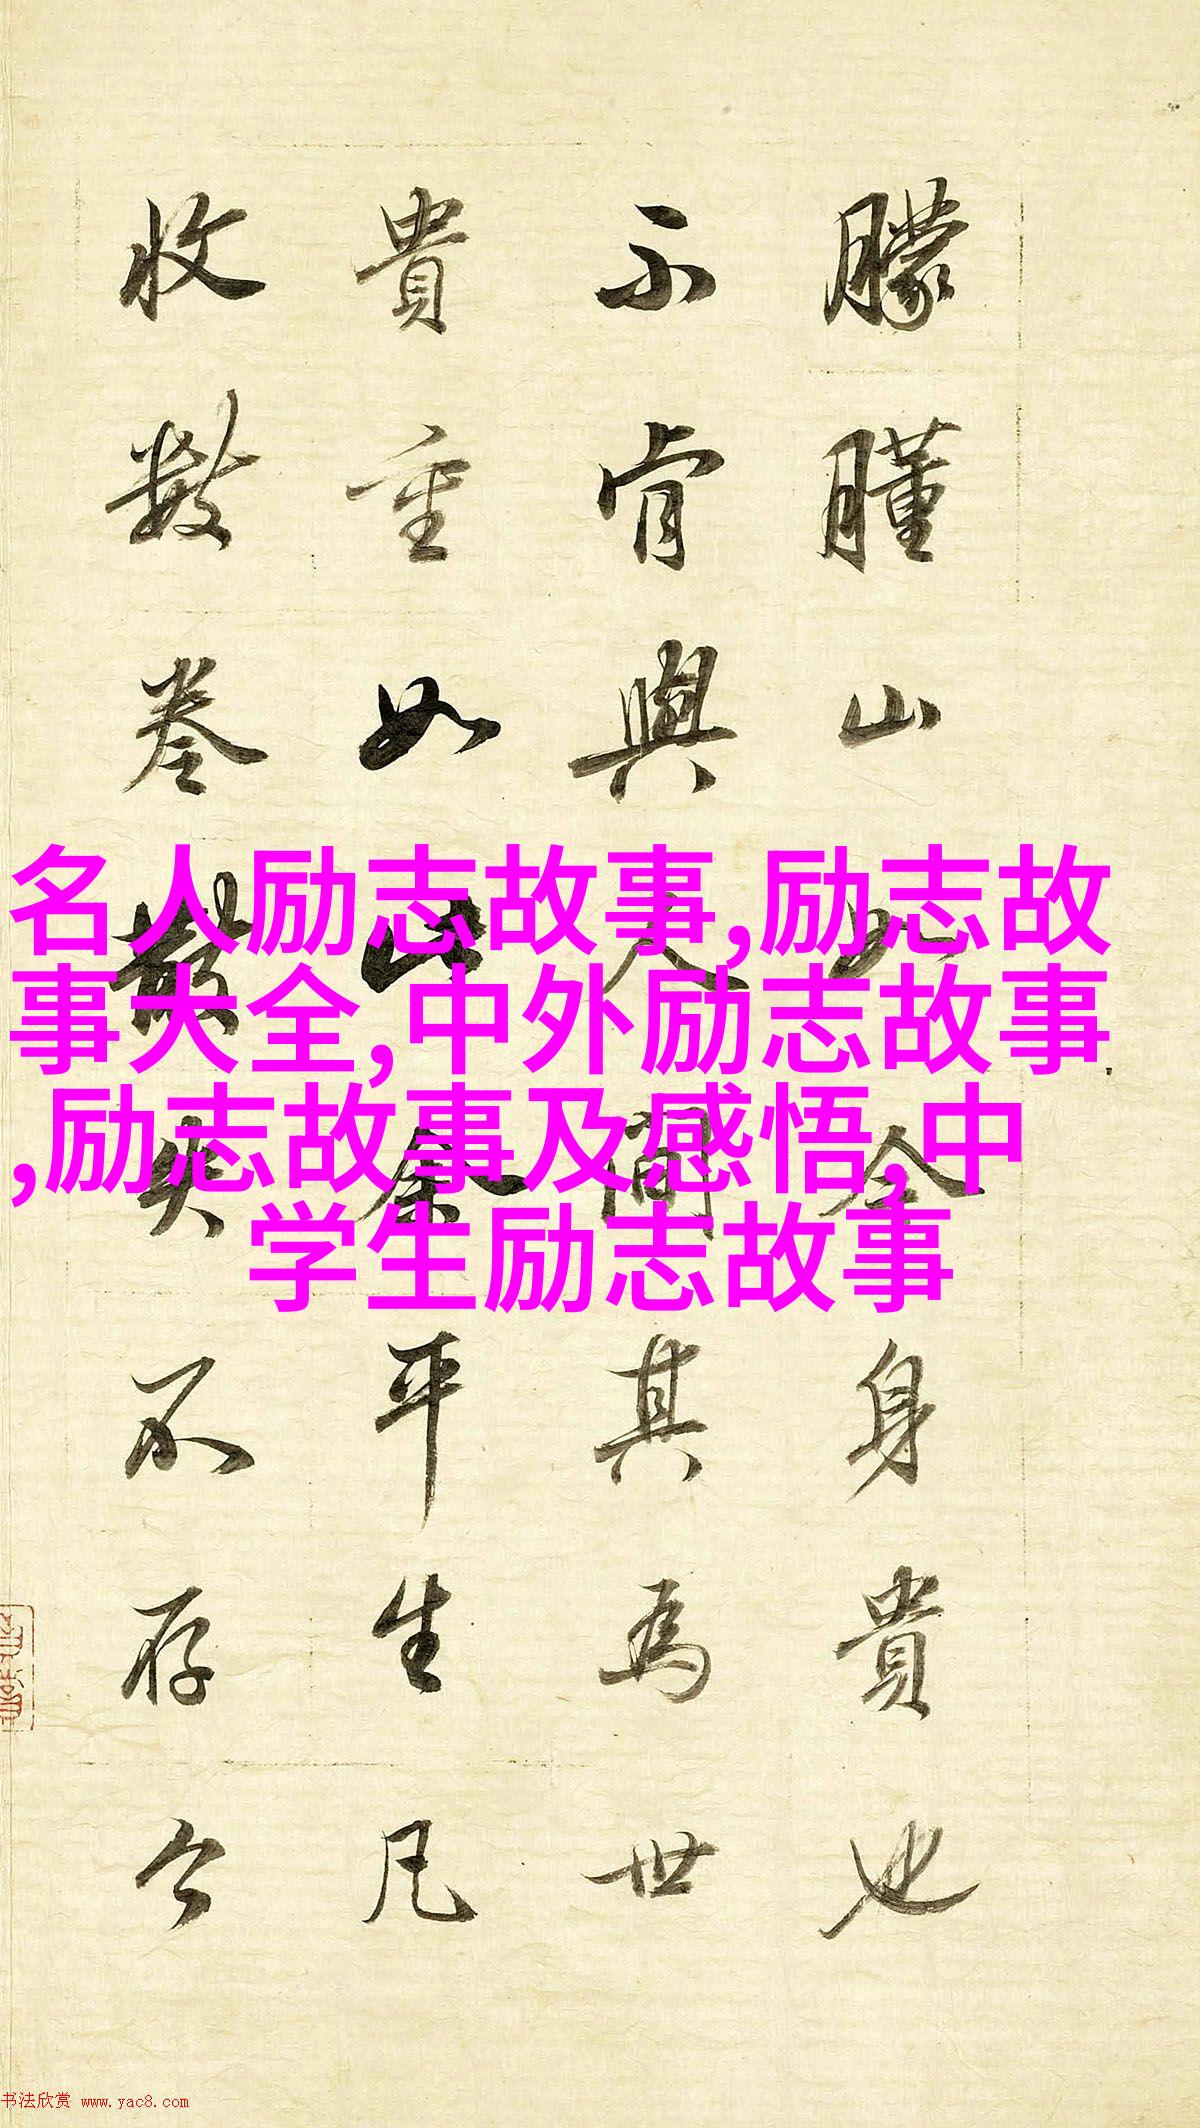 朦朣山全身貴也
不肯與人間其為世
貴重如此余平生凡
收數卷散失不存今
名人励志故事,励志故
事大全,中外励志故事
,励志故事及感悟,中
学生励志故事
书法欣赏 www.yac8.com